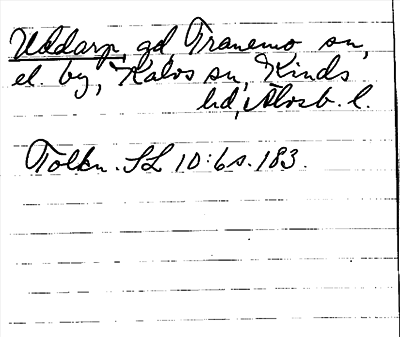 Uddarp, gd, Tranemo sn,
el. by, Kalvs sn, Kinds
hd, Älvsb. l.
Tolkn. SL 10:6 s. 183.